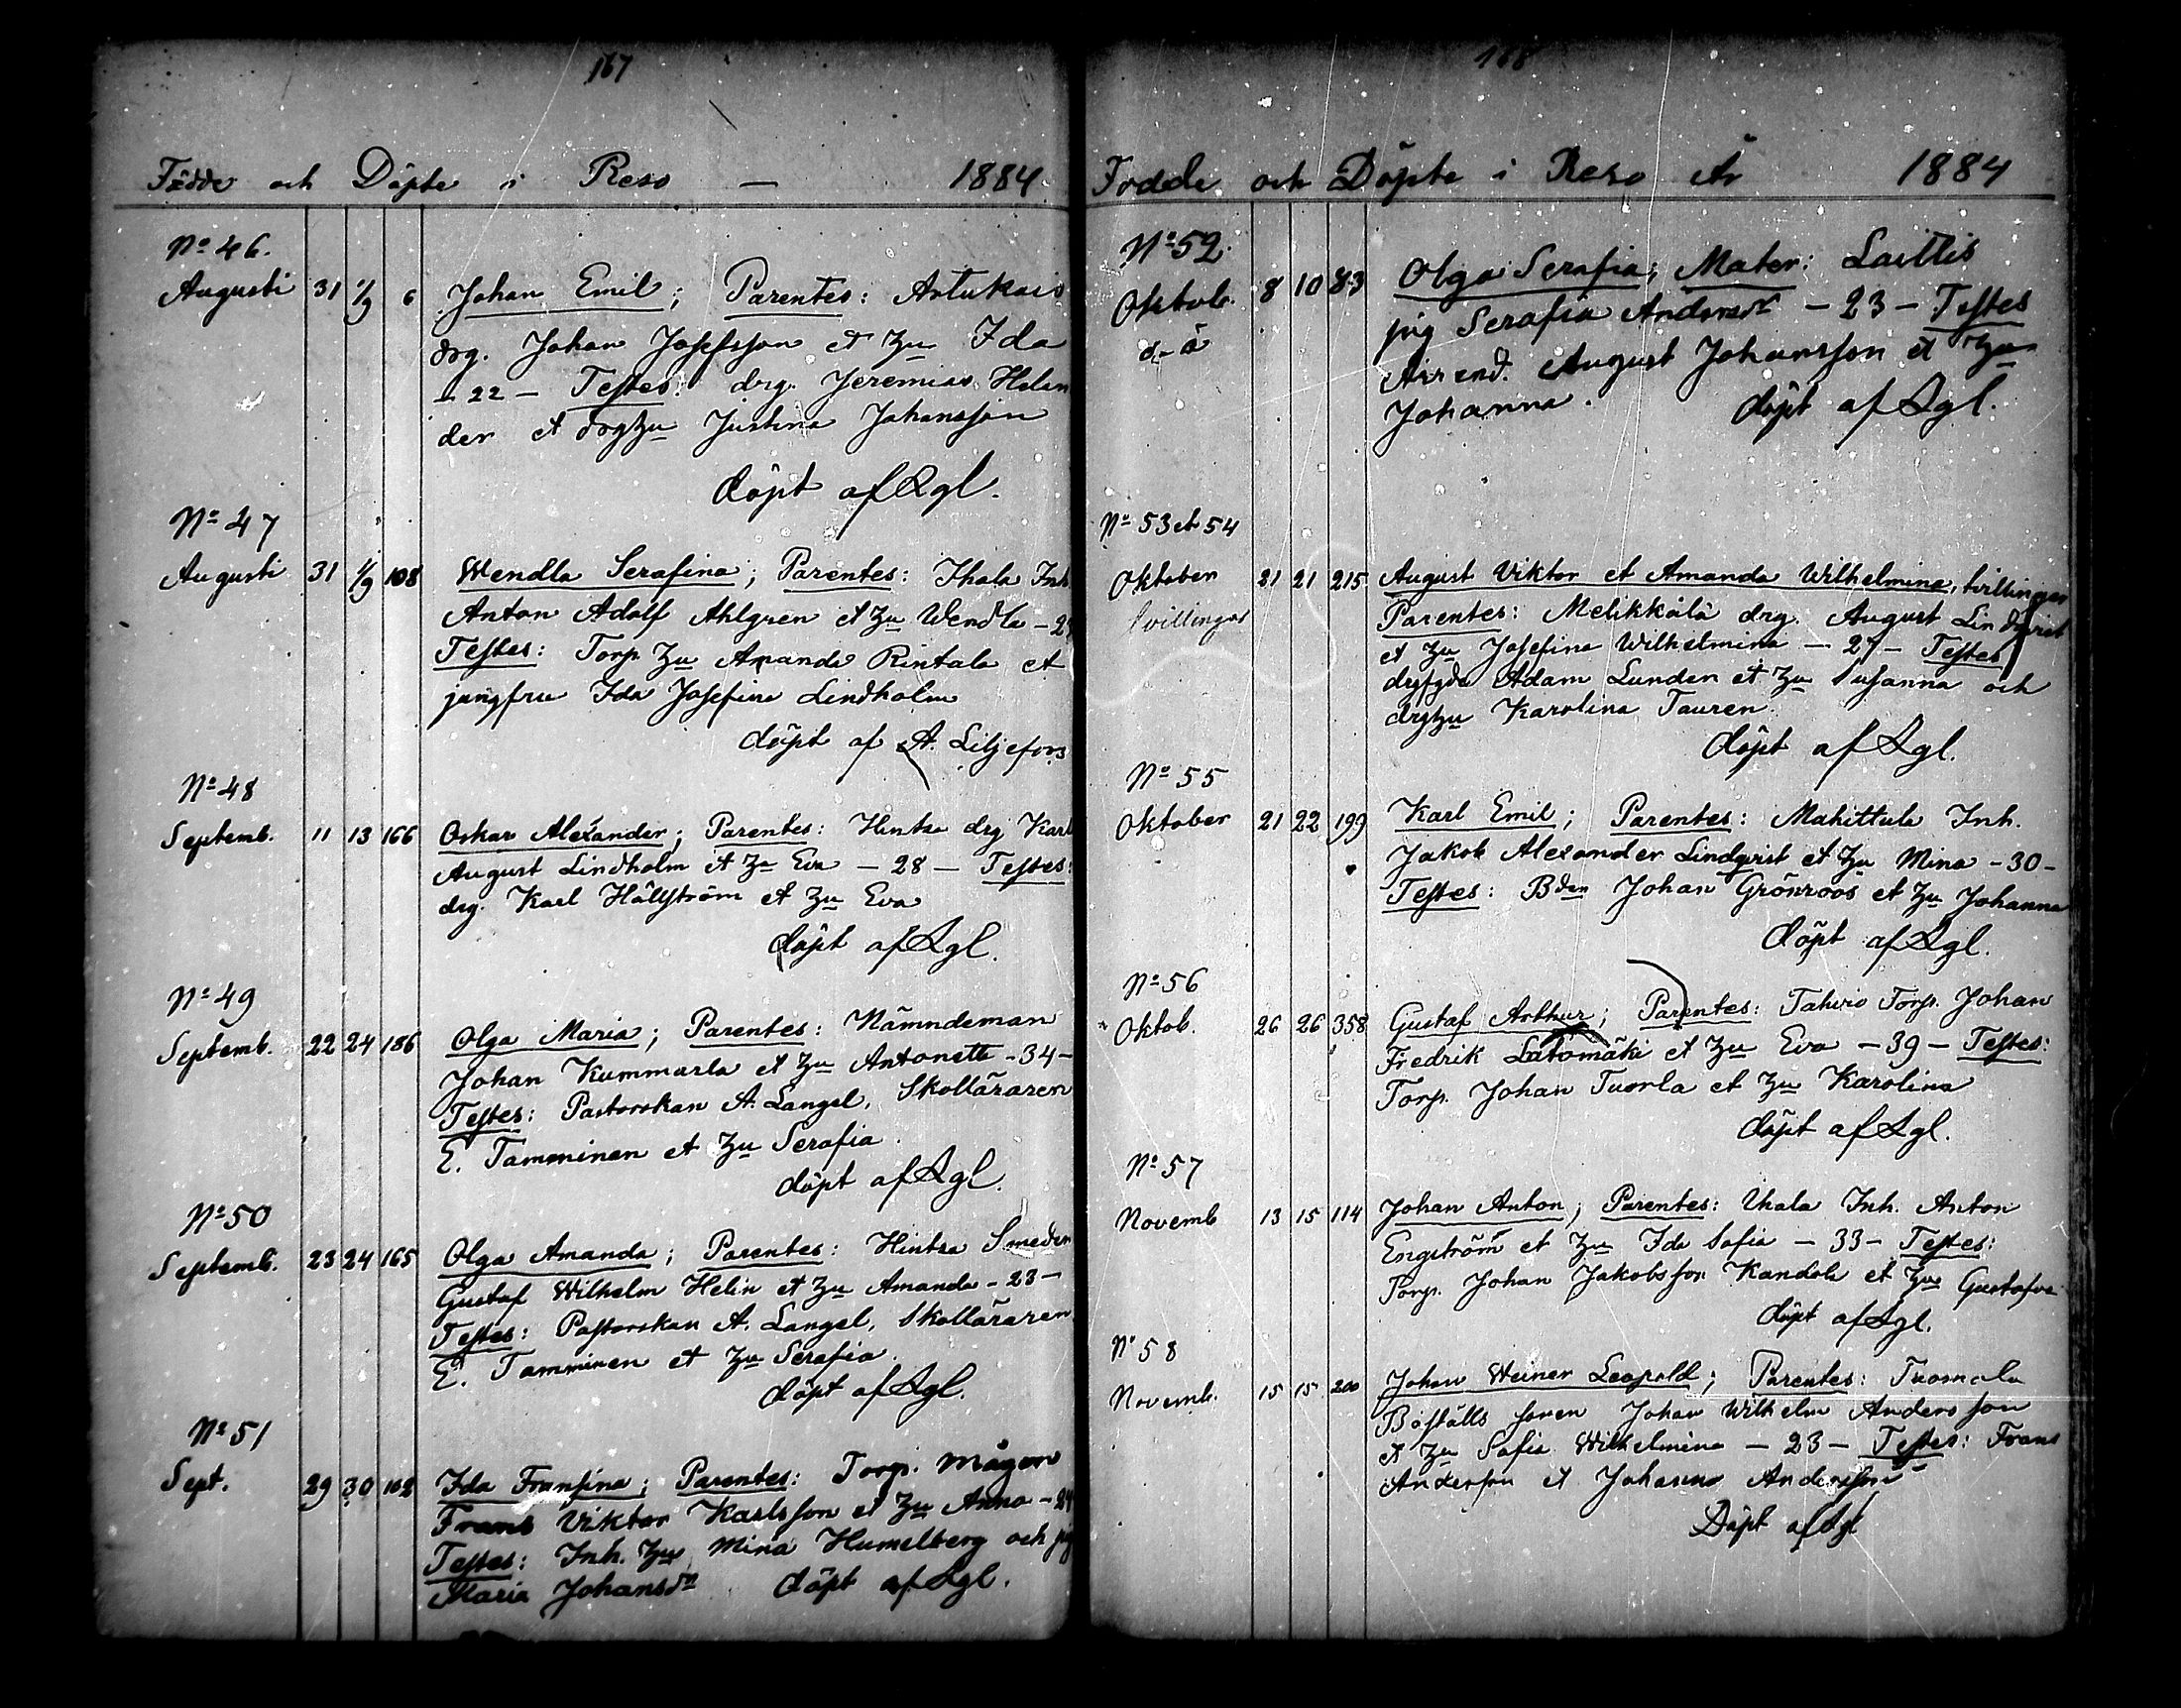 167
Födde och Döpte i Reso — 1884
No 46.
Augusti 31 1/9 6 Johan Emil; Parentes: Artukais
drg. Johan Josefsson et Hu Ida
- 22 - Testes: drg. Jeremias Helen
der et drghu Justina Johansson
döpt af Lgl.
No 47
Augusti 31 1/9 108 Wendla Serafina; Parentes: Ihala Inh
Anton Adolf Ahlgren et Hu Wendla
Testes: Torp Hu Amanda Rintala et
jungfru Ida Josefina Lindholm
döpt af A. Liljefors
No 48
Septemb. 11 13 166 Oskar Alexander; Parentes: Hintsa drg Karl
August Lindholm et Hu Eva - 28 - Testes:
drg. Karl Hällström et Hu Eva
döpt af Lgl.
No 49
Septemb. 22 24 186 Olga Maria; Parentes: Nämndeman
Johan Kummarla et Hu Antonette - 34 -
Testes: Pastorskan A. Langel, Skolläraren
E. Tamminen et Hu Serafia.
döpt af Lgl.
No 50
Septemb. 23 24 165 Olga Amanda; Parentes: Hintsa Smeden
Gustaf Wilhelm Helin et Hu Amanda - 23 -
Testes: Pastorskan A. Langel, Skolläraren
E. Tamminen et Hu Serafia.
döpt af Lgl.
No 51
Sept. 29 30 102 Ida Fransina; Parentes: Torp. mågen
Frans Viktor Karlsson et Hu Anna - 24
Testes: Inh. Hu Mina Humelberg och pig
Maria Johansdr döpt af Lgl.
168
Födde och Döpte i Reso År 1884
No 52.
Oktob. 8 10 83 Olga Serafia; Mater: Laittis
d. ä pig Serafia Andersdr - 23 - Testes
Arrend. August Johansson et Hu
Johanna. döpt af Lgl.
No 53 et 54
Oktober 21 21 215 August Viktor et Amanda Wilhelmina, tvillingar
tvillingar Parentes: Melikkälä drg. August Lindqvist
et Hu Josefina Wilhelmina - 27 - Testes
Adam Lunden et Hu Susanna och
drghu Karolina Tauren.
döpt af Lgl.
No 55
Oktober 21 22 199 Karl Emil; Parentes: Mahittula Inh.
Jakob Alexander Lindqvist et Hu Mina - 30 -
Testes: Bden Johan Grönroos et Hu Johanna
döpt af Lgl.
No 56
Oktob. 26 26 358 Gustaf Arthur; Parentes: Tahvio Torp. Johan
Fredrik Latomäki et Hu Eva - 39 - Testes:
Torp. Johan Tuorla et Hu Karolina
döpt af Lgl.
No 57
Novemb 13 15 114 Johan Anton; Parentes: Ihala Inh. Anton
Engström et Hu Ida Sofia - 33 - Testes:
Torp. Johan Jakobsson Kandola et Hu Gustafva
döpt af Lgl.
No 58
Novemb. 15 15 200 Johan Weiner Leopold; Parentes: Tuomola
Boställs sonen Johan Wilhelm Andersson
et Hu Sofia Wilhelmina - 23 - Testes: Frans
Andersson et Johanna Andersson
Döpt af Lgl